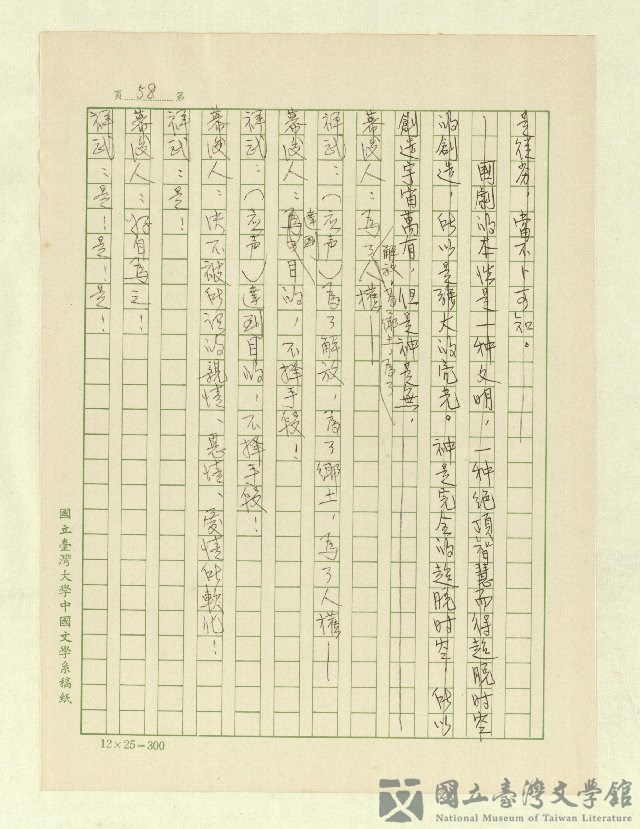 第 58 頁
是徒劳,當不卜可知。——
——國劇的本性是一种文明,一种绝頂智慧而得超脱时空
的創造,所以是強大的完美。神是完全的超脱时空,所以
創造宇宙萬有,但是神是無,————
幕後人:為了解放,為了鄉土,為了人權——
祥武:(应声)為了解放,為了鄉土,為了人權——
幕後人:為達到目的,不擇手段!
祥武:(应声)達到目的,不擇手段!
幕後人:决不被所謂的親情、恩情、愛情所軟化!
祥武:是!
幕後人:好自為之!
祥武:是!是!是!
國立臺灣大學中國文學系稿紙
12×25=300
國立臺灣文學館
National Museum of Taiwan Literature